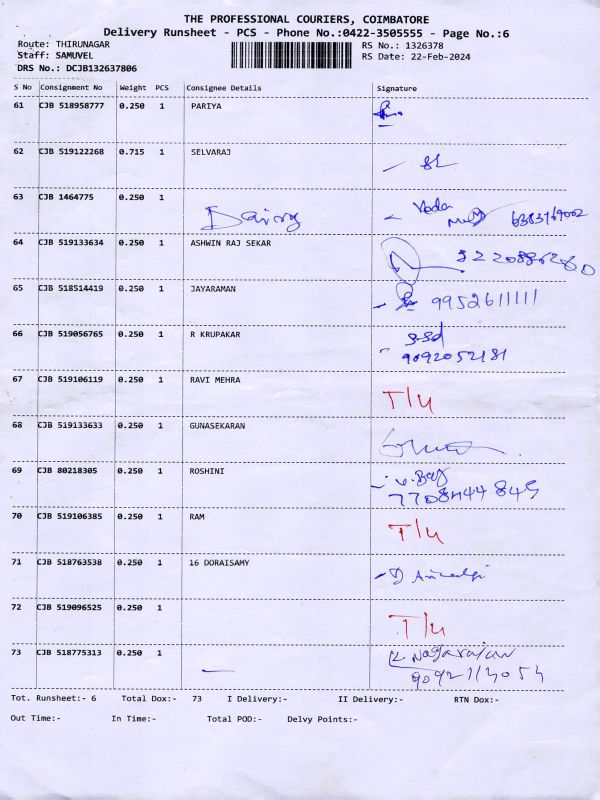 THE PROFESSIONAL COURIERS, COIMBATORE
Delivery Runsheet - PCS - Phone No.:0422-3505555 - Page No.:6
Route: THIRUNAGAR RS No.: 1326378
Staff: SAMUVEL RS Date: 22-Feb-2024
DRS No.: DCJB132637806
S No Consignment No Weight PCS Consignee Details Signature
61 CJB 518958777 0.250 1 PARIYA
62 CJB 519122268 0.715 1 SELVARAJ
63 CJB 1464775 0.250 1 6383769002
64 CJB 519133634 0.250 1 ASHWIN RAJ SEKAR
65 CJB 518514419 0.250 1 JAYARAMAN 9952611111
66 CJB 519056765 0.250 1 R KRUPAKAR
9092052181
67 CJB 519106119 0.250 1 RAVI MEHRA T/U
68 CJB 519133633 0.250 1 GUNASEKARAN
69 CJB 80218305 0.250 1 ROSHINI
70 CJB 519106385 0.250 1 RAM T/U
71 CJB 518763538 0.250 1 16 DORAISAMY
72 CJB 519096525 0.250 1 T/U
73 CJB 518775313 0.250 1 Nagarajan
Tot. Runsheet:- 6 Total Dox:- 73 I Delivery:- II Delivery:- RTN Dox:-
Out Time:- In Time:- Total POD:- Delvy Points:-